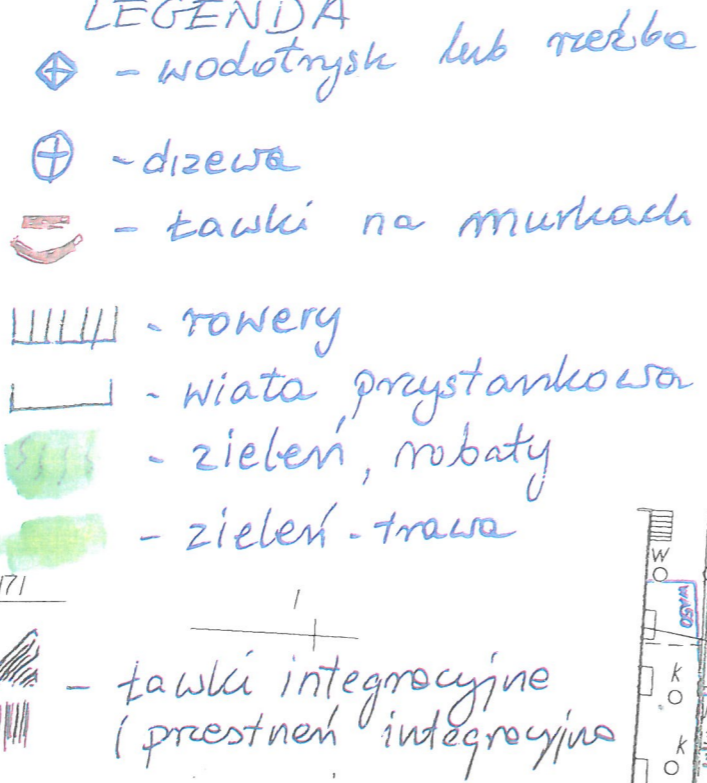 LEGENDA
- wodotrysk lub rzeźba
- drzewa
- ławki na murkach
- rowery
- wiata przystankowa
- zieleń, rabaty
- zieleń - trawa
171
- ławki integracyjne
i przestrzeń integracyjna
W
WASO
K
K